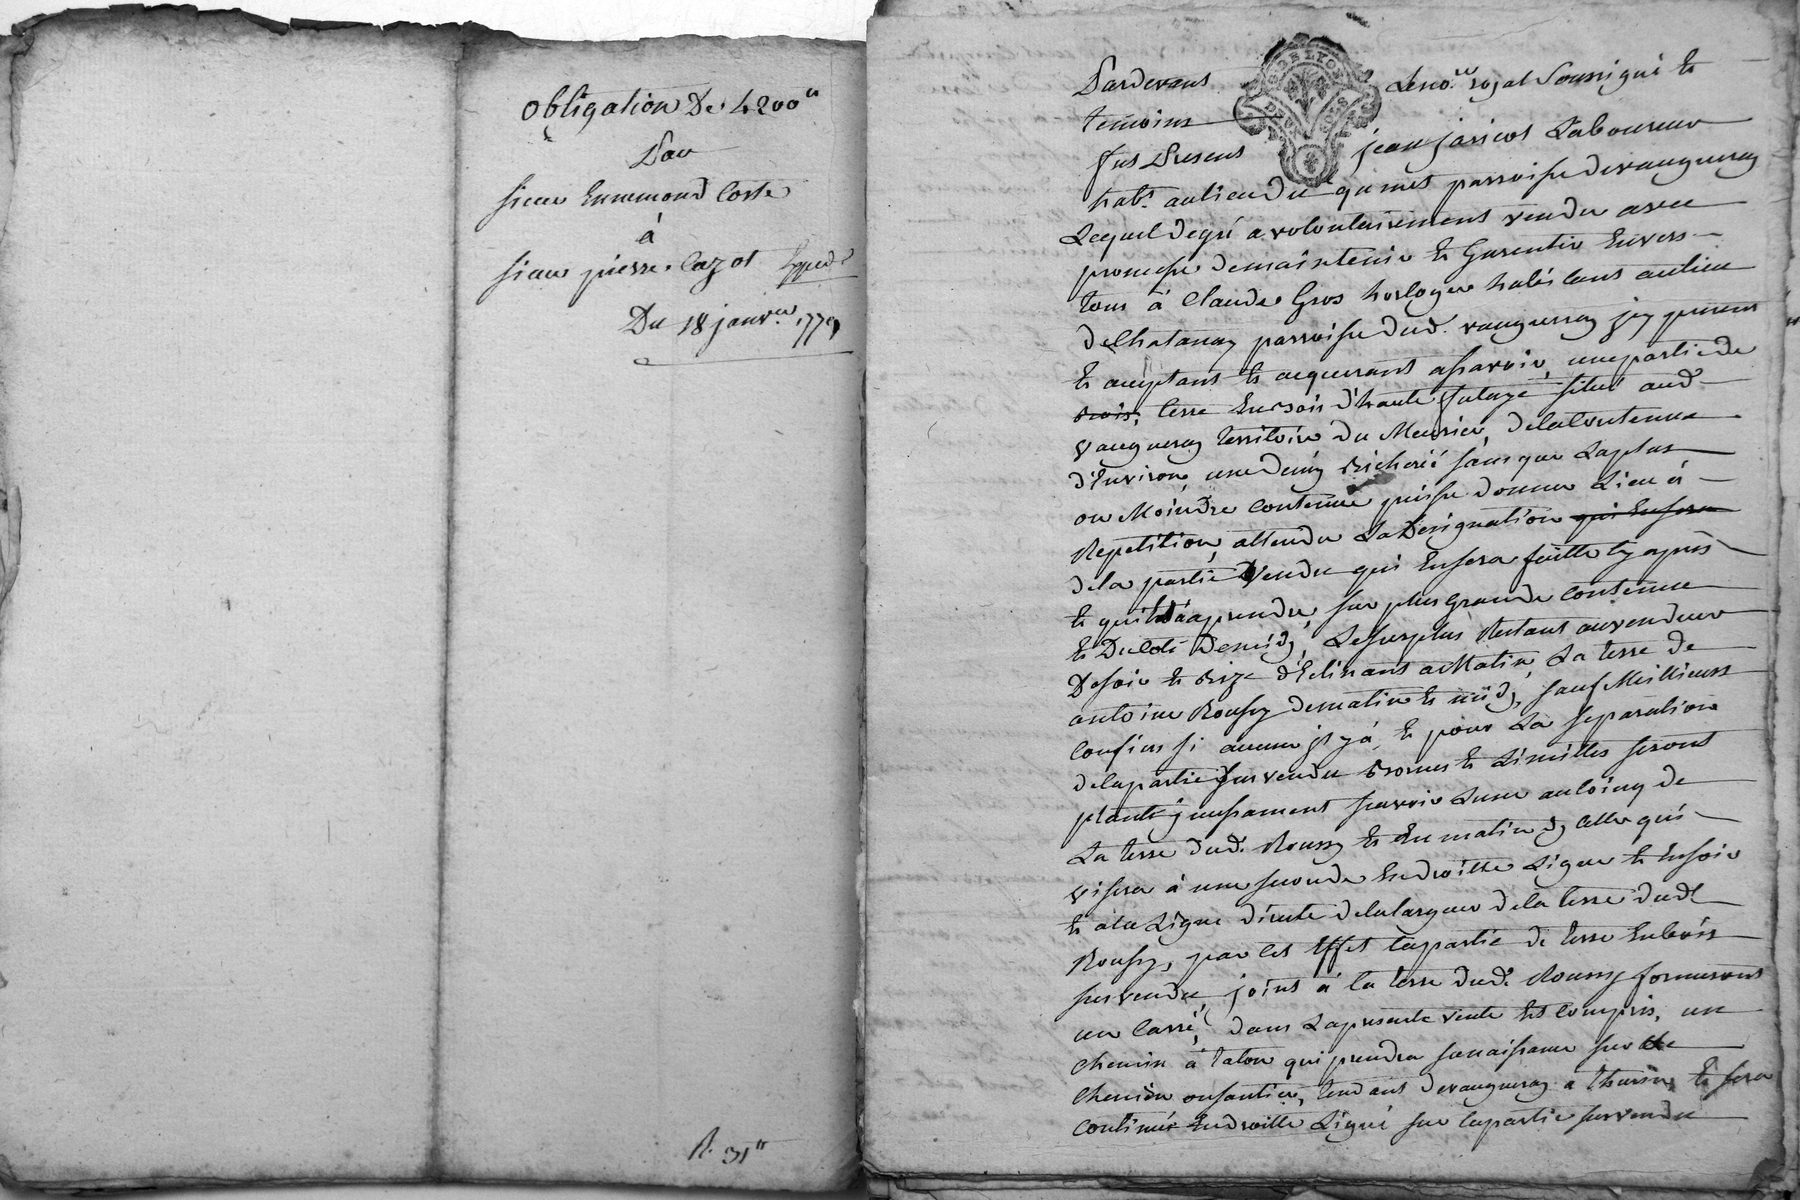 obligation De 4200ᵗᵗ
Par
sieur Ennemond Coste
à
sieur pierre Cazot
Du 18 janv.ᵉʳ 1779
R. 31ᵗᵗ
Pardevant Le no.ʳᵉ royal Soussigné Et
temoins
fut Present jean jaricot Laboureur
habt. au lieu du quinet parroisse de vaugneray
Lequel de gré a volontairement vendu avec
promesse de maintenir Et Garentir Envers
tous à Claude Gros horloger habitant au lieu
de Chatanay parroisse dud. vaugneray jcy present
Et acceptant Et acquerant assavoir, une partie de
bois, terre En bois d'haute futaye situé aud.
vaugneray territoire du Meurier, de la Contenue
d'Environ une demÿ Bicherée sans que La plus
ou Moindre Contenue puisse donner Lieu à
Repetition, attendu La Designation qui En sera
de la partie Vendu qui En sera faitte cy après
Et qui Est à prendre sur plus Grande Contenue
Et Du Coté De midy, Le surplus Restant au vendeur
De soir Et Bize d'Eclinant a Matin, La terre de
antoine Roussy de matin Et midy, sauf Meilleurs
Confins si aucun jl y á, Et pour La separation
de la partie sus vendu Bornes Et Limittes seront
planté jncessament savoir L'une au coing de
La terre dud. Roussy Et En matin, Celle qui
visera à une seconde En droitte Ligne Et En soir
Et a la Ligne directe de la largeur de la terre dud.
Roussy, par Cet Effet la partie de terre En bois
sus vendu, joint à la terre dud. Roussy formeront
un Carré, dans La presente vente Est Compris, un
chemin à talon qui prendra sa naissance sur le
Chemin ou sentier, tendant de vaugneray a thurin Et sera
Continué En droitte Ligne sur la partie sus vendu